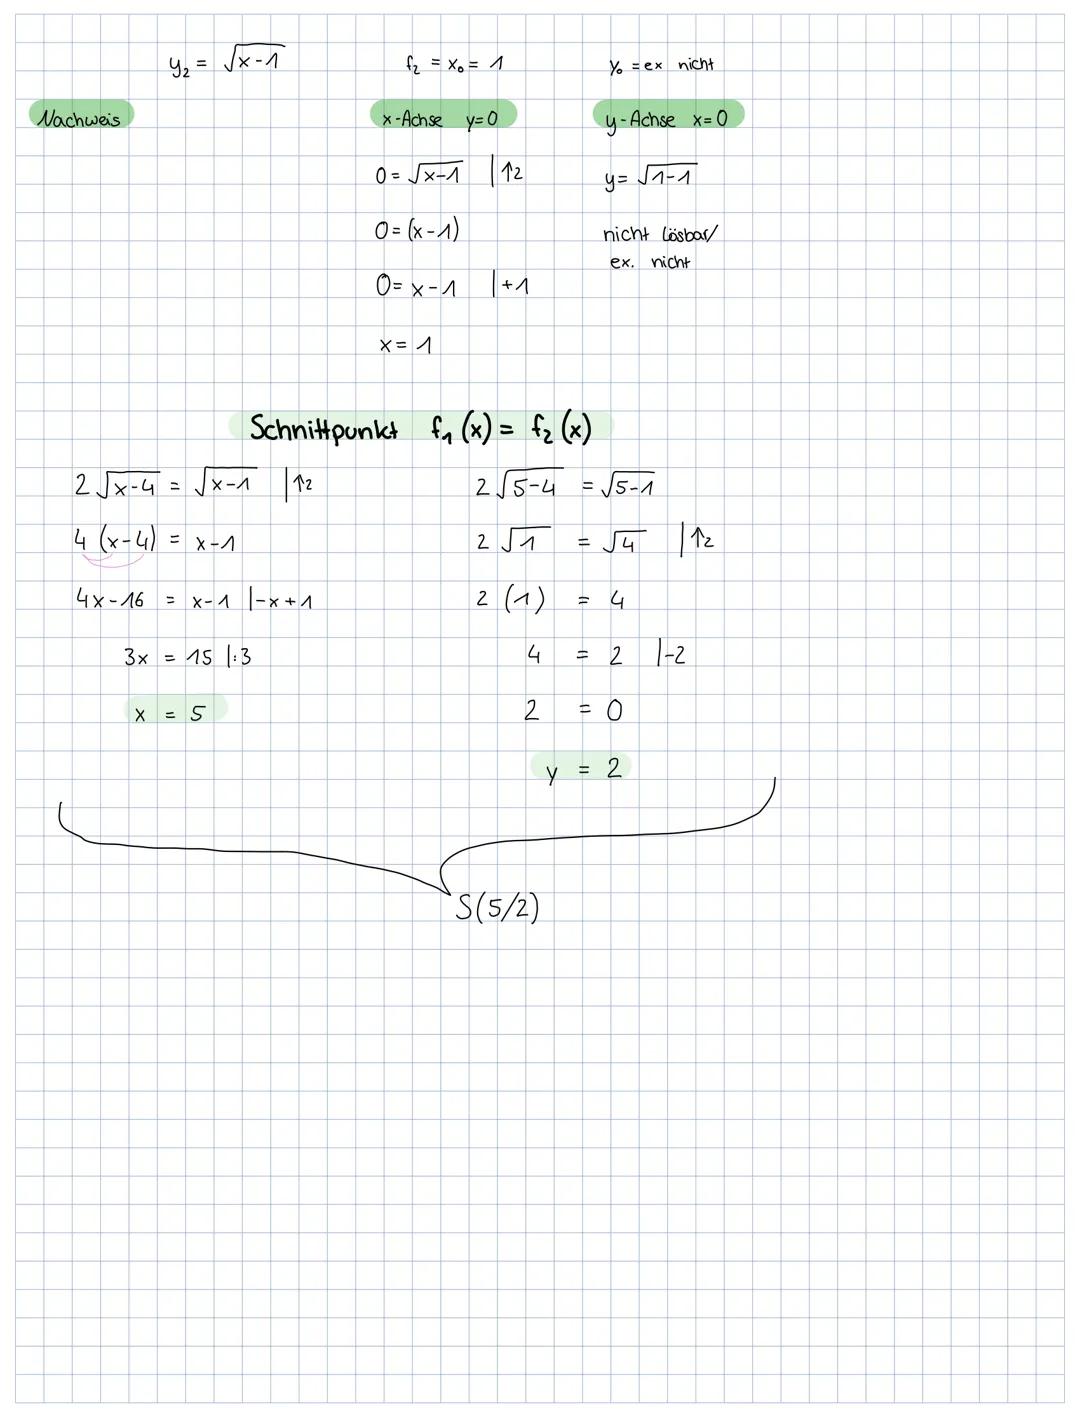 y₂ = √x-1    f₂ = x₀ = 1    y₀ = ex nicht
Nachweis    x-Achse y=0    y-Achse x=0
0 = √x-1 |↑2    y = √1-1
0 = (x-1)    nicht lösbar/
ex. nicht
0 = x-1 |+1
x = 1
Schnittpunkt f₁(x) = f₂(x)
2√x-4 = √x-1 |↑2    2√5-4 = √5-1
4(x-4) = x-1    2√1 = √4 |↑2
4x-16 = x-1 |-x+1    2(1) = 4
3x = 15 |:3    4 = 2 |-2
x = 5    2 = 0
y = 2
S(5/2)